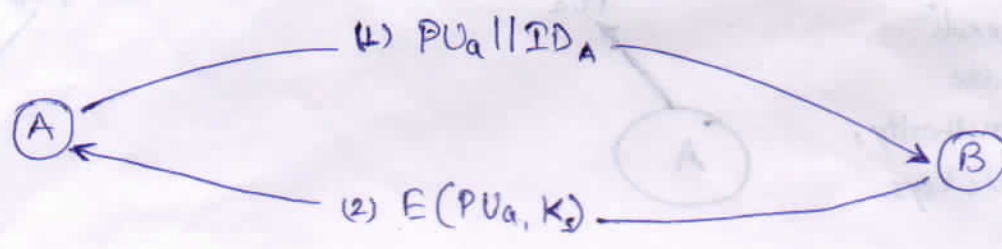 (1) PUa || IDA
A
B
(2) E(PUa, Ks)